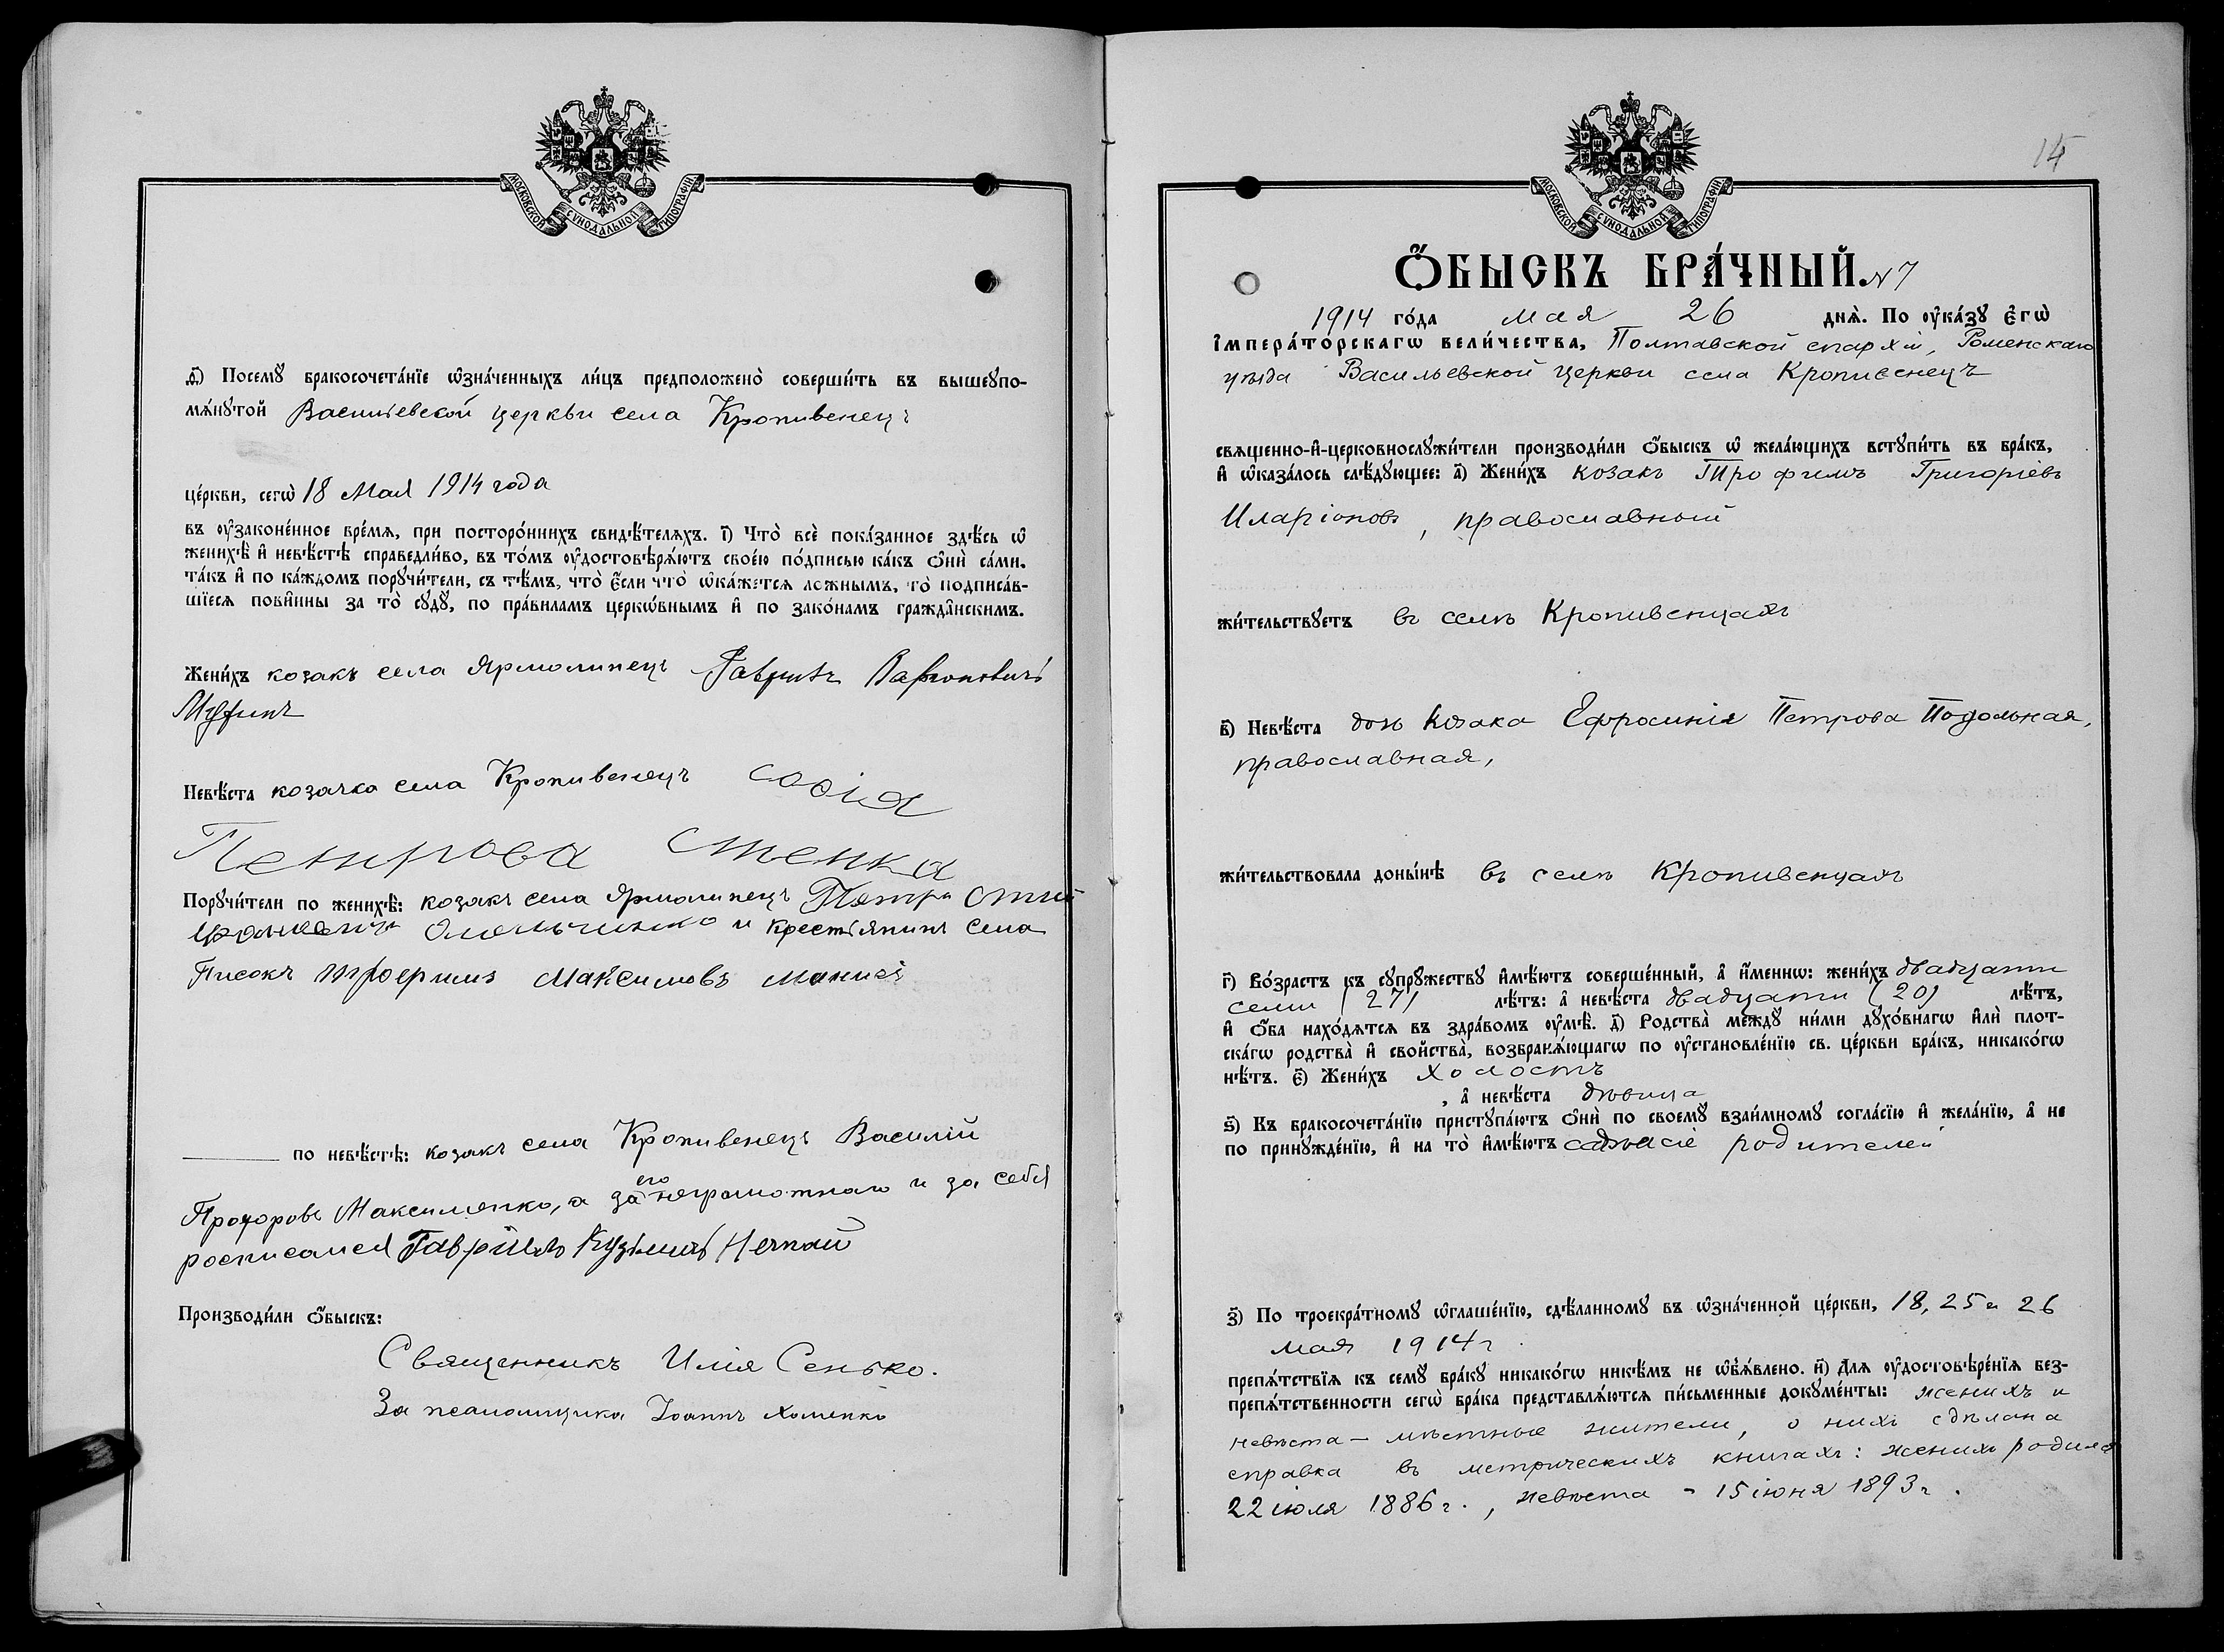 МОСКОВСКОЙ СѴНОДАЛЬНОЙ ТИПОГРАФІИ
ѳ҃) Посемꙋ̀ бракосочета́нїе ѡ҆зна́ченныхъ ли́цъ предположено̀ соверши́ть въ вышеꙋпо-
мѧ́нꙋтой Васильевской церкви села Кропивенецъ
це́ркви, сегѡ̀ 18 Мая 1914 года
въ ᲂу҆законе́нное вре́мѧ, при посторо́ннихъ свидѣ́телѧхъ. і҃) Что̀ всѐ пока́занное здѣ́сь ѡ҆
женихѣ̀ и҆ невѣ́стѣ справедли́во, въ то́мъ ᲂу҆достовѣрѧ́ютъ свое́ю по́дписью ка́къ ѻ҆нѝ са́ми.
та́къ и҆ по ка́ждомъ порꙋчи́тели, съ тѣ́мъ, что̀ є҆́сли что̀ ѡ҆ка́жетсѧ ложнымъ, то̀ подписа́в-
шїесѧ пови́нны за то̀ сꙋдꙋ̀, по пра́виламъ церкѡ́внымъ и҆ по зако́намъ гражда́нскимъ.
Жени́хъ козакъ села Ярмолинецъ Гавриилъ
Невѣ́ста козачка села Кропивенецъ Софія
Петрова Стенка
Порꙋчи́тели по женихѣ̀: козакъ села Ярмолинецъ Петръ
Омельченко и крестьянинъ села
Писокъ Трофимъ Максимовъ
по невѣ́стѣ: козакъ села Кропивенецъ Василій
Прохоровъ Максименко, а за его неграмотнаго и за себя
росписался Гавріилъ Кузьмичъ Нечпай
Производи́ли ѻ҆́быскъ:
Священникъ Илія Сенько.
За псаломщика Іоаннъ Хоменко
15
МОСКОВСКОЙ СѴНОДАЛЬНОЙ ТИПОГРАФІИ
Ѻ҆́БЫСКЪ БРА́ЧНЫЙ. N 7
1914 го́да мая 26 днѧ̀. По ᲂу҆ка́зꙋ є҆гѡ̀
і҆мпера́торскагѡ вели́чества, Полтавской епархіи, Роменскаго
уѣзда Васильевской церкви села Кропивенецъ
свѧщенно-и҆-церковнослꙋжи́тели производи́ли ѻ҆́быскъ ѡ҆ жела́ющихъ встꙋпи́ть въ бра́къ,
и҆ ѡ҆каза́лось слѣ́дꙋющее: а҃) Жени́хъ козакъ Трофимъ Григоріевъ
Иларіоновъ, православный
жи́тельствꙋетъ въ селѣ Кропивенцахъ
в҃) Невѣ́ста дочь козака Ефросинія Петрова Подольная,
православная,
жи́тельствовала доны́нѣ въ селѣ Кропивенцахъ
г҃) Во́зрастъ къ сꙋпрꙋ́жествꙋ и҆мѣ́ютъ соверше́нный, а҆ и҆́меннѡ: жени́хъ двадцати
семи (27) лѣ́тъ: а҆ невѣ́ста двадцати (20) лѣ́тъ,
и҆ ѻ҆́ба нахо́дѧтсѧ въ здра́вомъ ᲂу҆мѣ̀. д҃) Родства̀ междꙋ ни́ми дꙋхо́внагѡ и҆лѝ плот-
ска́гѡ родства̀ и҆ свойства̀, возбранѧ́ющагѡ по ᲂу҆становле́нїю св. це́ркви бра́къ, никако́гѡ
нѣ́тъ. є҃) Жени́хъ холостъ
, а҆ невѣ́ста дѣвица
ѕ҃) Къ бракосочета́нїю пристꙋпа́ютъ ѻ҆нѝ по своемꙋ̀ взаи́мномꙋ согла́сїю и҆ жела́нїю, а҆ не
по принꙋжде́нїю, и҆ на то̀ и҆мѣ́ютъ согласіе родителей
з҃) По троекра́тномꙋ ѡ҆глаше́нїю, сдѣ́ланномꙋ въ ѡ҆зна́ченной це́ркви, 18, 25 и 26
мая 1914 г.
препѧ́тствїѧ къ семꙋ̀ бра́кꙋ никако́гѡ никѣ́мъ не ѡ҆б̾ѧ́влено. и҃) Длѧ ᲂу҆достовѣре́нїѧ без-
препѧ́тственности сегѡ̀ бра́ка представлѧ́ютсѧ пи́сьменные докꙋме́нты: женихъ и
невѣста – мѣстные жители, о нихъ сдѣлана
справка въ метрическихъ книгахъ: женихъ родился
22 іюля 1886 г., невѣста – 15 іюня 1893 г.